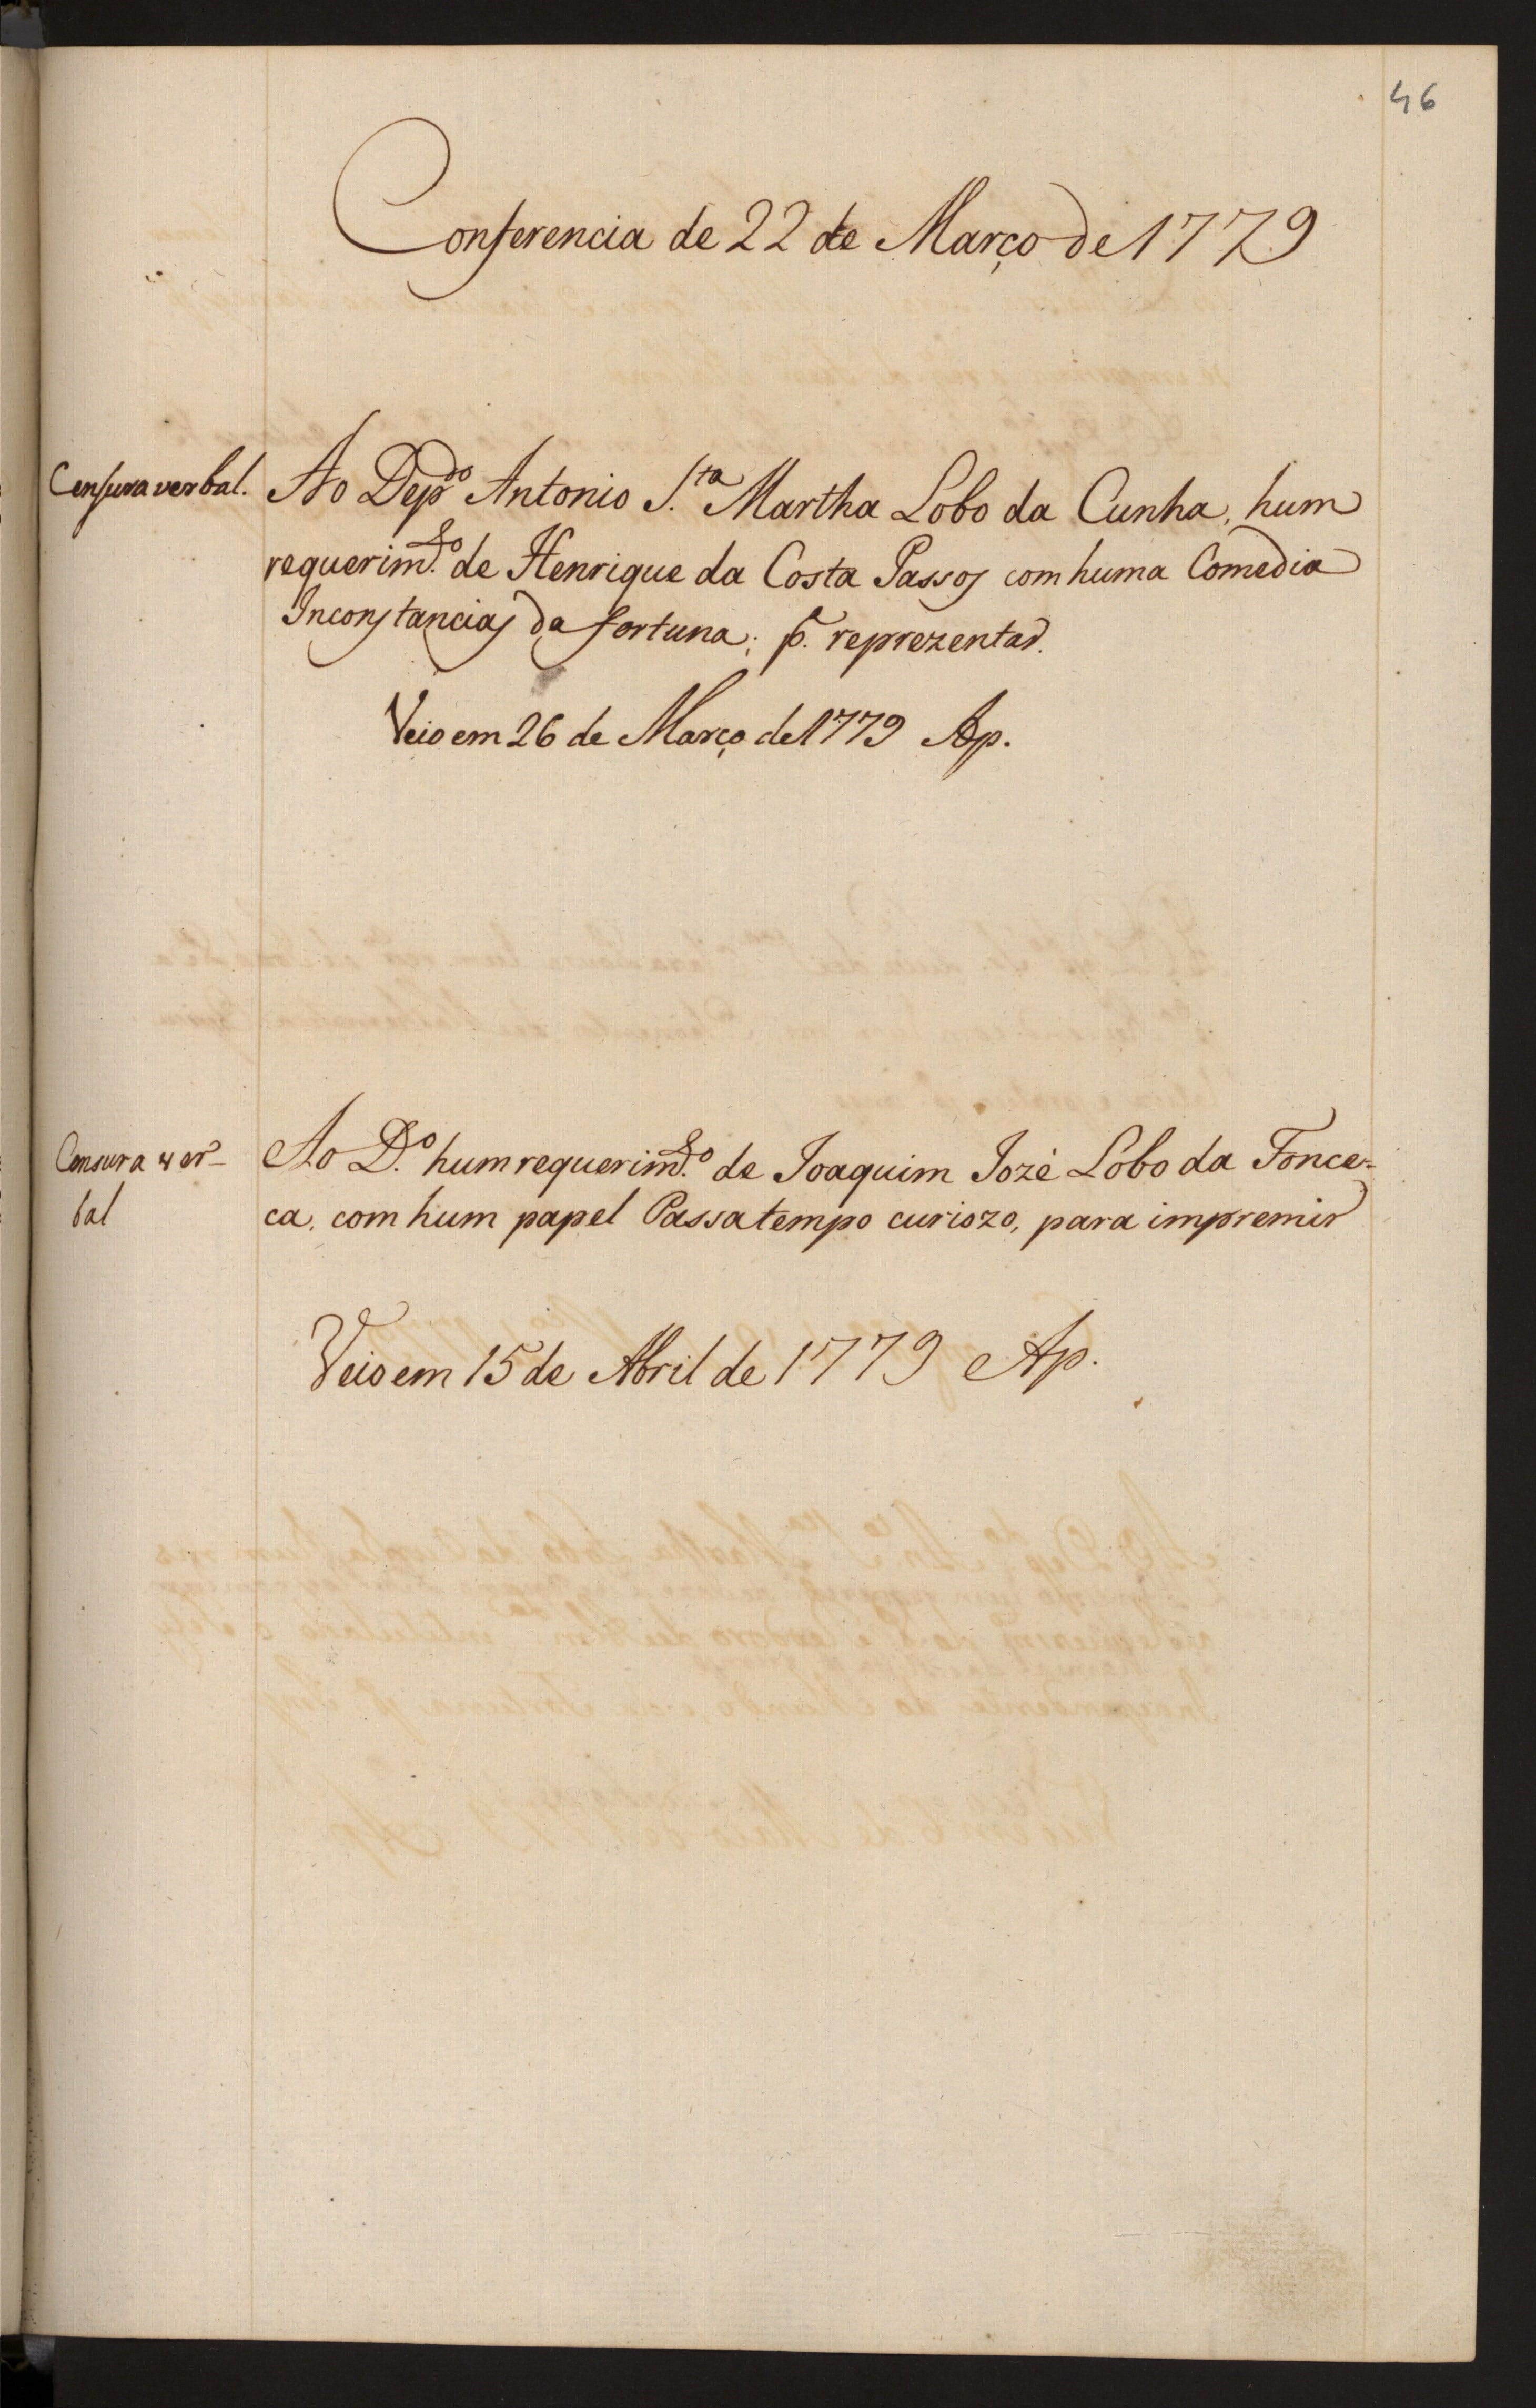 46
Conferencia de 22 de Março de 1779
Censura verbal.
Ao Dep.do Antonio S.ta Martha Lobo da Cunha, hum
requerim.to de Henrique da Costa Passos com huma Comedia
Inconstancias da fortuna; p.a reprezentar.
Veio em 26 de Março de 1779 Ap.
Censura ver-
bal
Ao D.o hum requerim.to de Joaquim Jozé Lobo da Fonce-
ca, com hum papel Passatempo curiozo, para impremir
Veio em 15 de Abril de 1779 Ap.